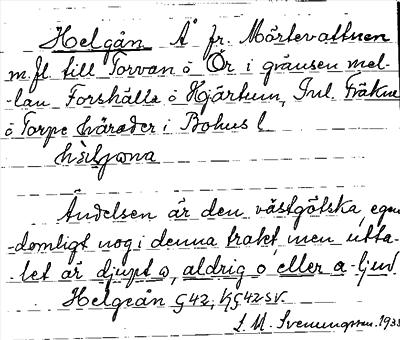 Helgån Å fr. Mörtevattnen
m.fl. till Torvan ö Ör i gränsen mel-
-lan Forshälla ö Hjärtum, Inl. Fräkne
ö Torpe härader i Bohusl
hä̀ljωna
Ändelsen är den västgötska, egen
-domligt nog i denna trakt, men utta-
-let är djupt ω, aldrig o eller a-ljud
Helgeån G42, Hj G42 SV.
L. M. Svenungsson. 1933